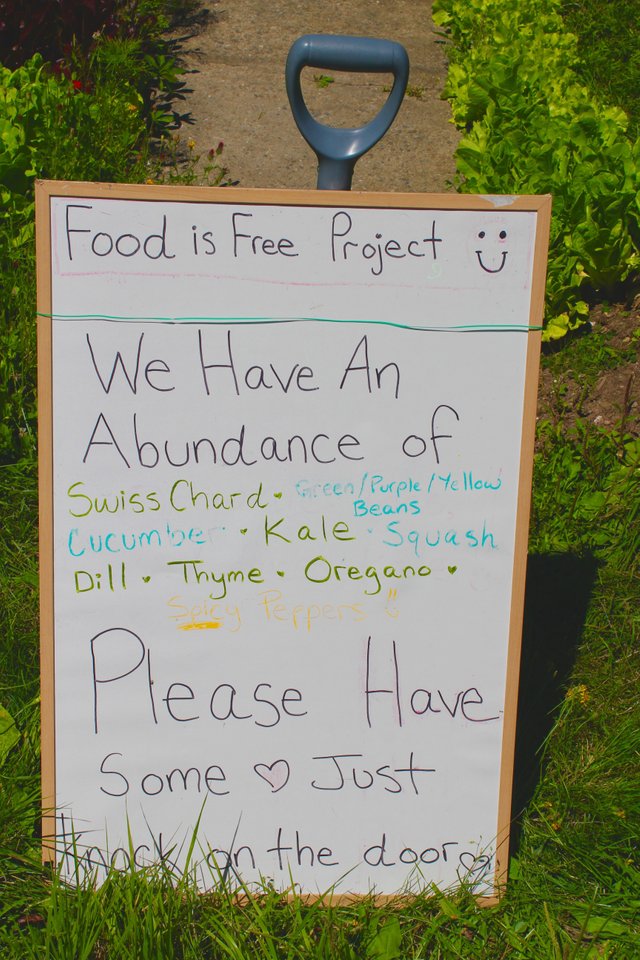 Food is Free Project
We Have An
Abundance of
Swiss Chard • Green/Purple/Yellow
Beans
Cucumber • Kale • Squash
Dill • Thyme • Oregano •
Spicy Peppers
Please Have
Some ♡ Just
knock on the door